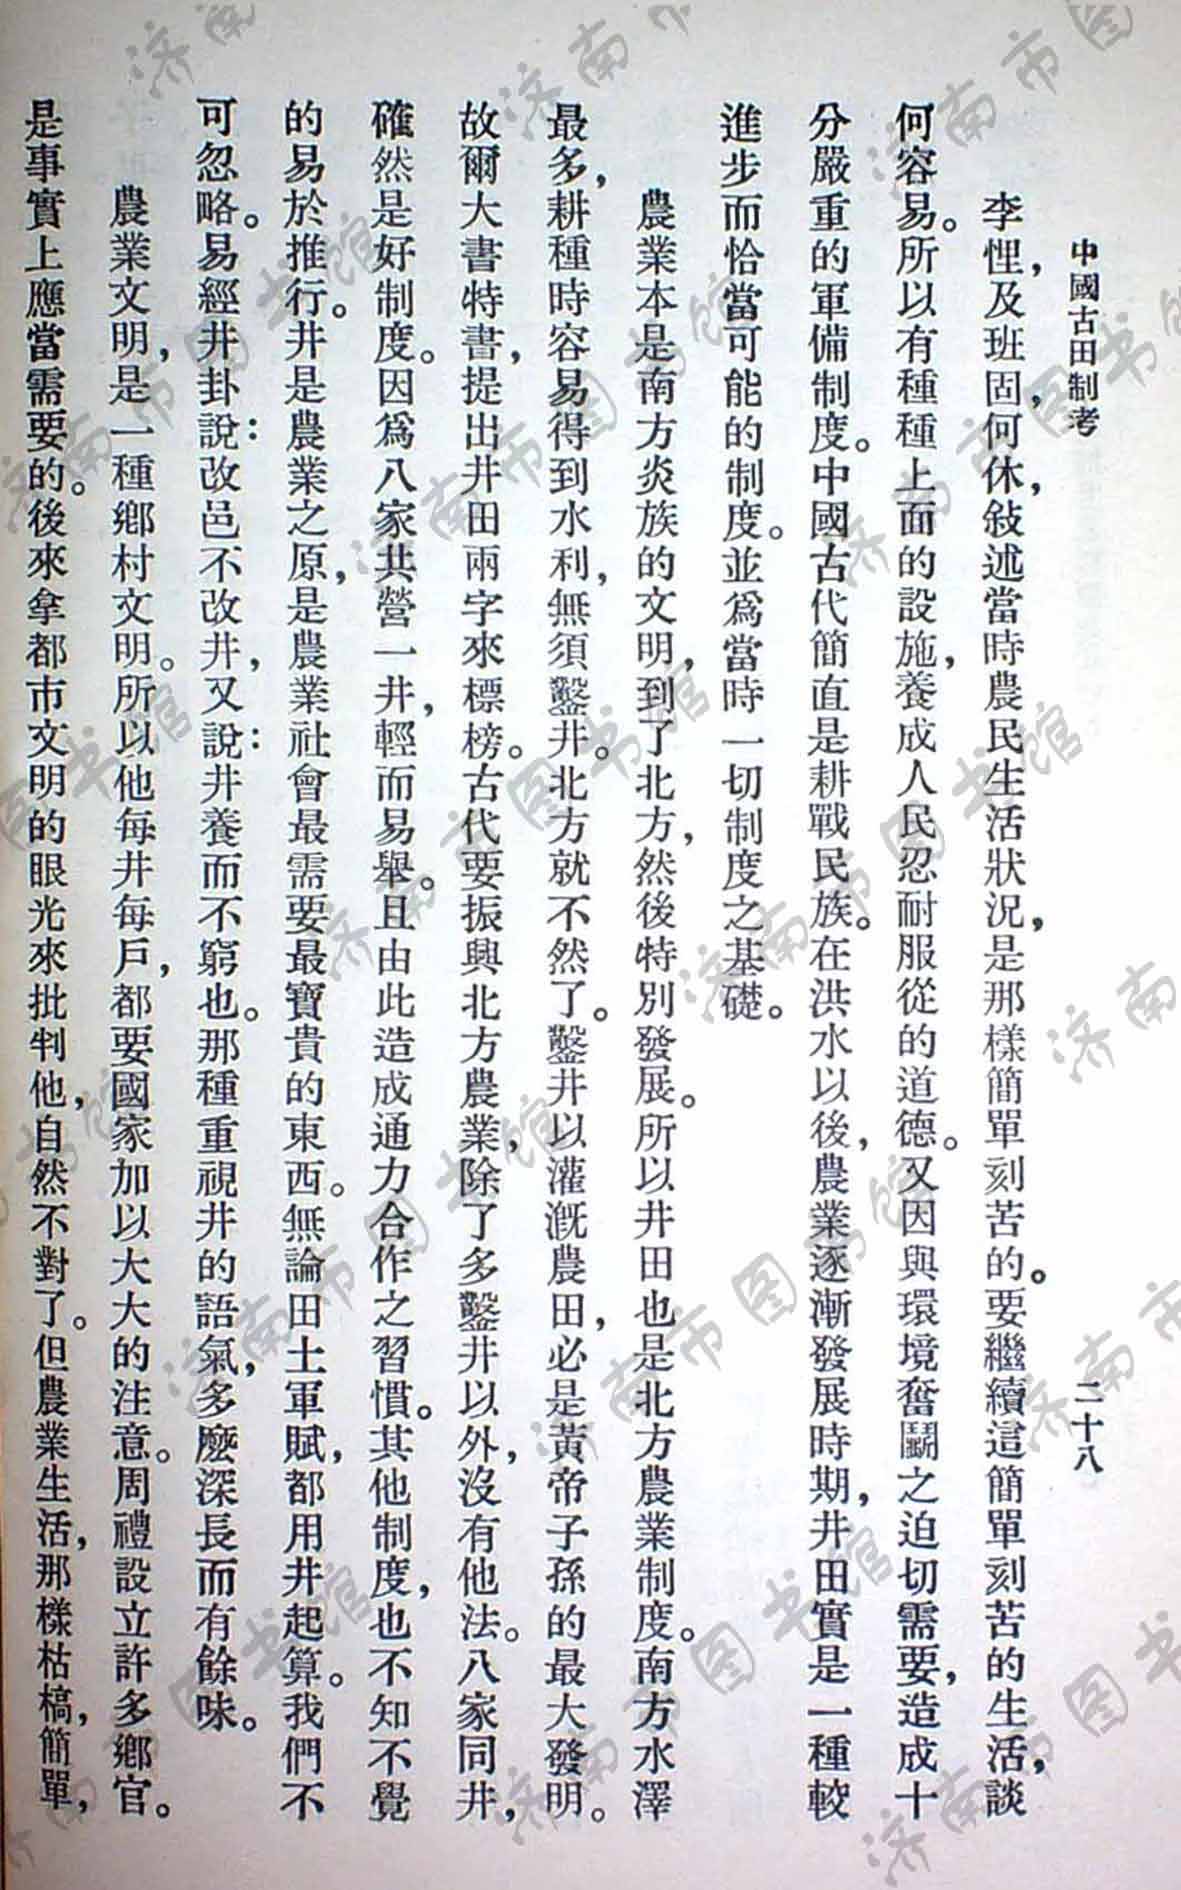 中國古田制考
二十八
李悝，及班固，何休，敍述當時農民生活狀況，是那樣簡單刻苦的。要繼續這簡單刻苦的生活，談
何容易。所以有種種上面的設施，養成人民忍耐服從的道德。又因與環境奮鬭之迫切需要，造成十
分嚴重的軍備制度。中國古代簡直是耕戰民族。在洪水以後，農業逐漸發展時期，井田實是一種較
進步而恰當可能的制度。並爲當時一切制度之基礎。
農業本是南方炎族的文明，到了北方，然後特別發展。所以井田也是北方農業制度。南方水澤
最多，耕種時容易得到水利，無須鑿井。北方就不然了。鑿井以灌漑農田，必是黃帝子孫的最大發明。
故爾大書特書，提出井田兩字來標榜。古代要振興北方農業，除了多鑿井以外，沒有他法。八家同井，
確然是好制度。因爲八家共營一井，輕而易舉。且由此造成通力合作之習慣。其他制度，也不知不覺
的易於推行。井是農業之原，是農業社會最需要最寶貴的東西。無論田土軍賦，都用井起算。我們不
可忽略。易經井卦說：改邑不改井，又說：井養而不窮也。那種重視井的語氣，多麼深長而有餘味。
農業文明，是一種鄉村文明。所以他每井每戶，都要國家加以大大的注意。周禮設立許多鄉官。
是事實上應當需要的。後來拿都市文明的眼光來批判他，自然不對了。但農業生活，那樣枯槁，簡單，
济南市图书馆